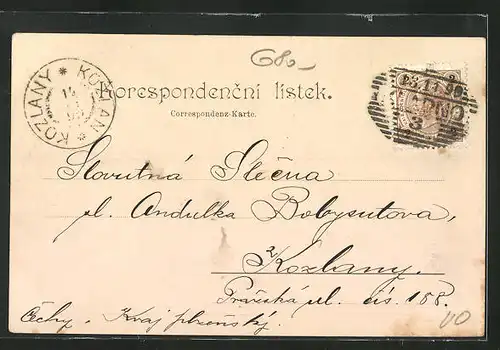 680.-
KOZLANY * KOŽLAN *
Korespondenční lístek.
Correspondenz-Karte.
Slovutná Slečna
sl. Andulka Bobysutova,
Kozlany.
ul. čís. 188.
Čechy. Kraj plzeňský.